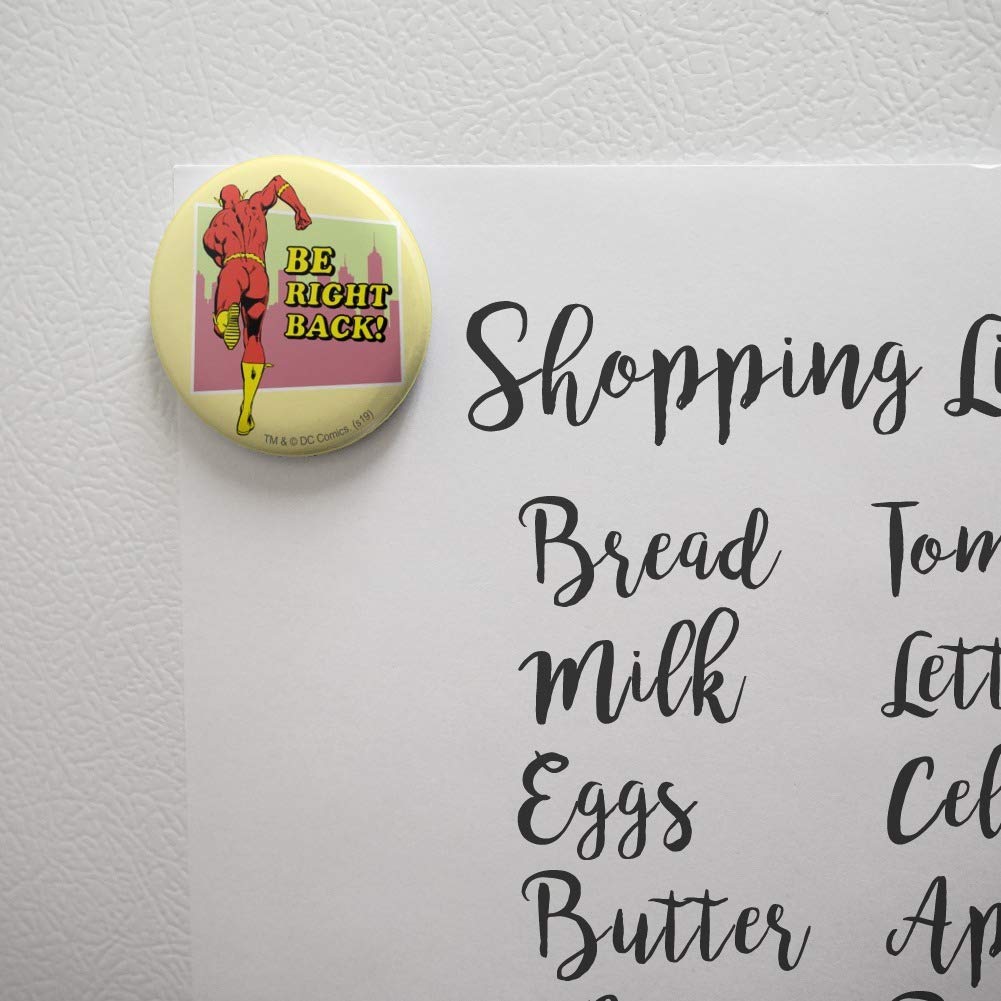 BE
RIGHT
BACK!
TM & © DC Comics. (s19)
Shopping Li
Bread Tom
Milk Lett
Eggs Cel
Butter Ap